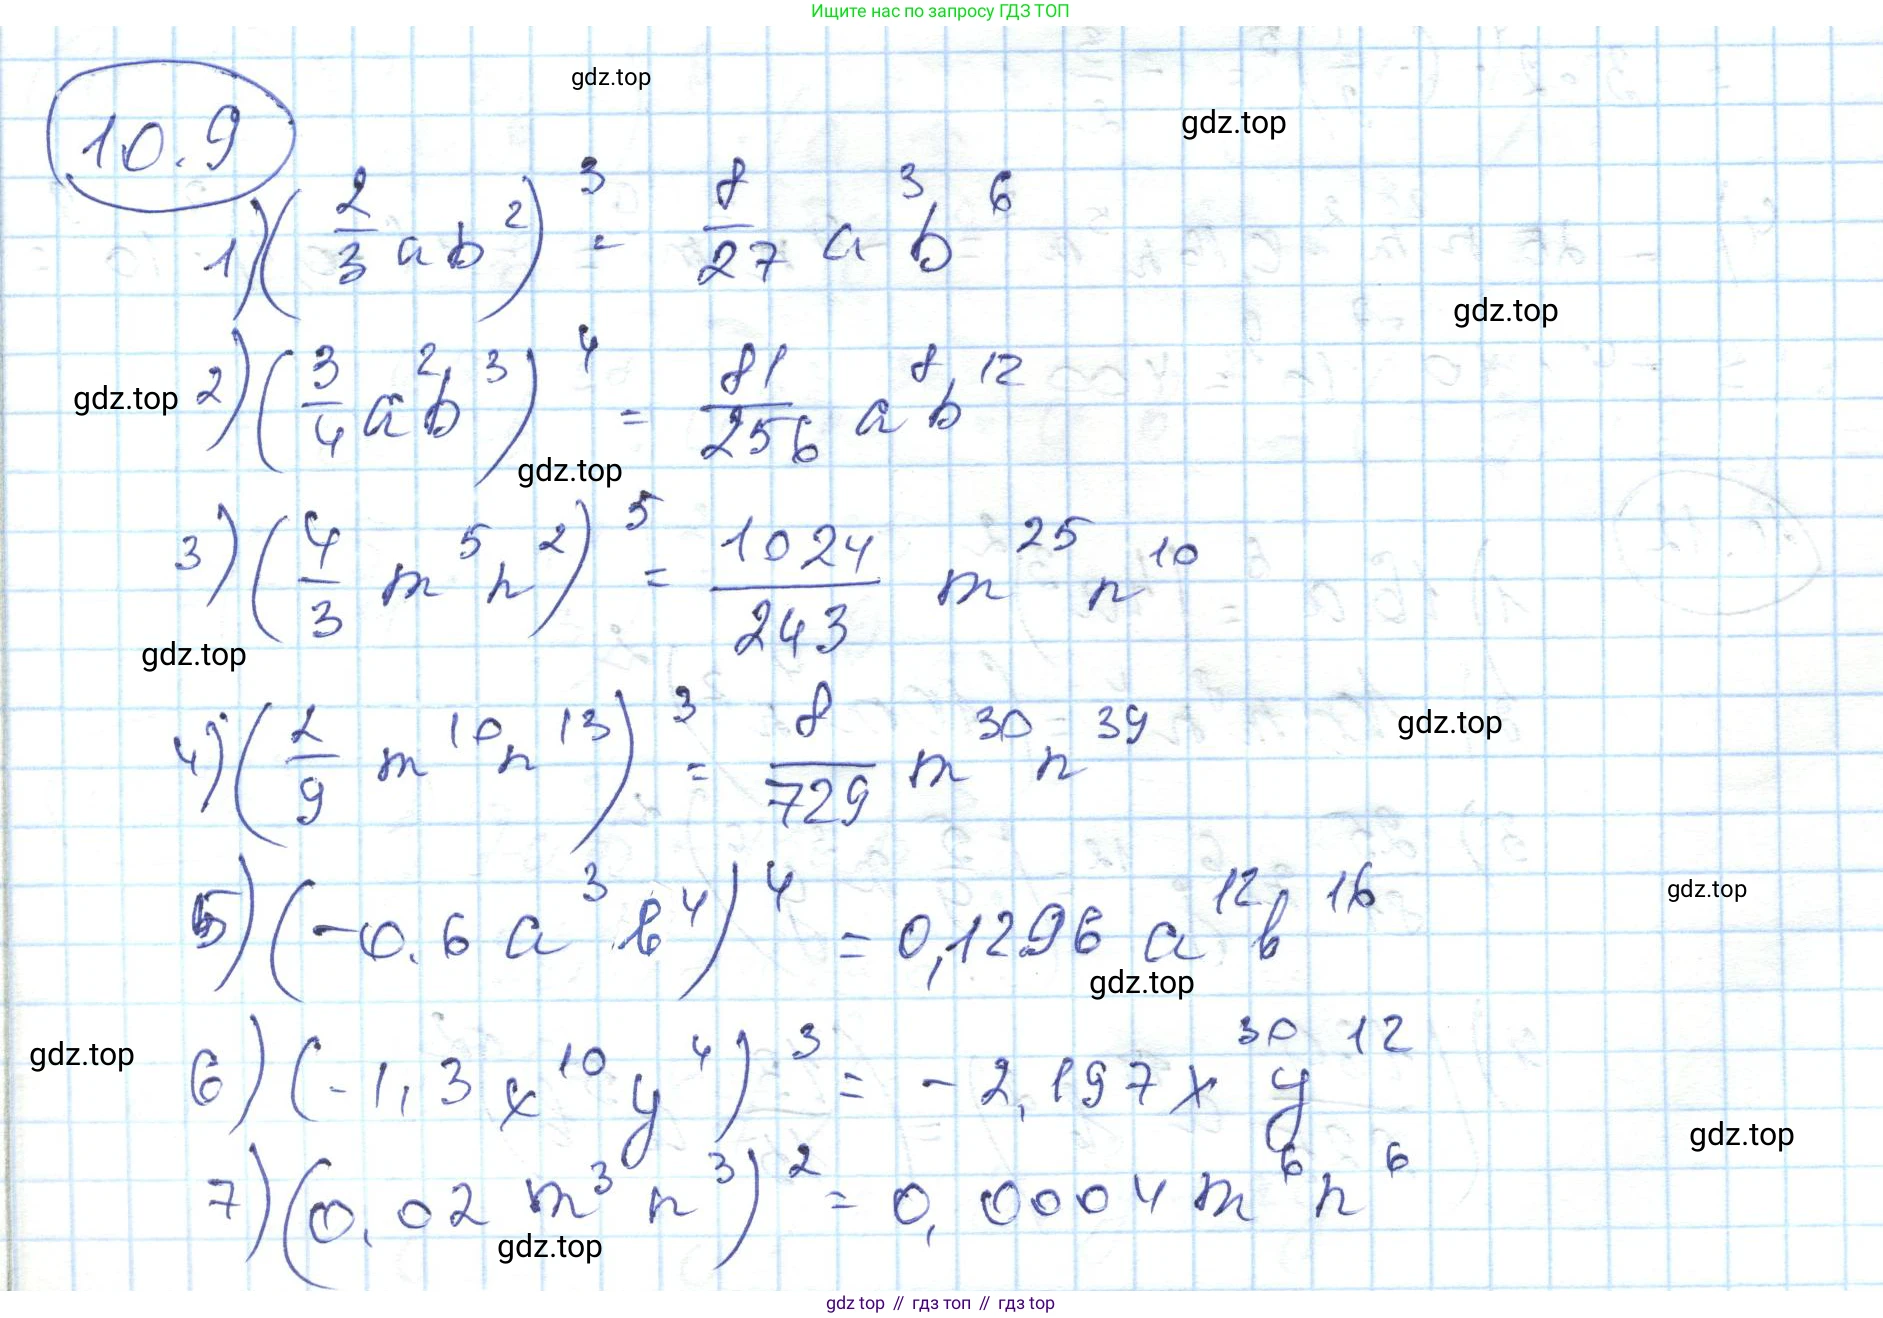 Ищите нас по запросу ГДЗ ТОП
gdz.top
gdz.top
10.9
1) (2/3 ab²)³ = 8/27 a³b⁶
gdz.top
gdz.top
2) (3/4 a²b³)⁴ = 81/256 a⁸b¹²
gdz.top
3) (4/3 m⁵n²)⁵ = 1024/243 m²⁵n¹⁰
gdz.top
4) (2/9 m¹⁰n¹³)³ = 8/729 m³⁰n³⁹
gdz.top
5) (-0.6 a³b⁴)⁴ = 0,1296 a¹²b¹⁶
gdz.top
gdz.top
gdz.top
6) (-1,3x¹⁰y⁴)³ = -2,197x³⁰y¹²
gdz.top
7) (0,02 m³n³)² = 0,0004m⁶n⁶
gdz.top
gdz top // гдз топ // гдз top